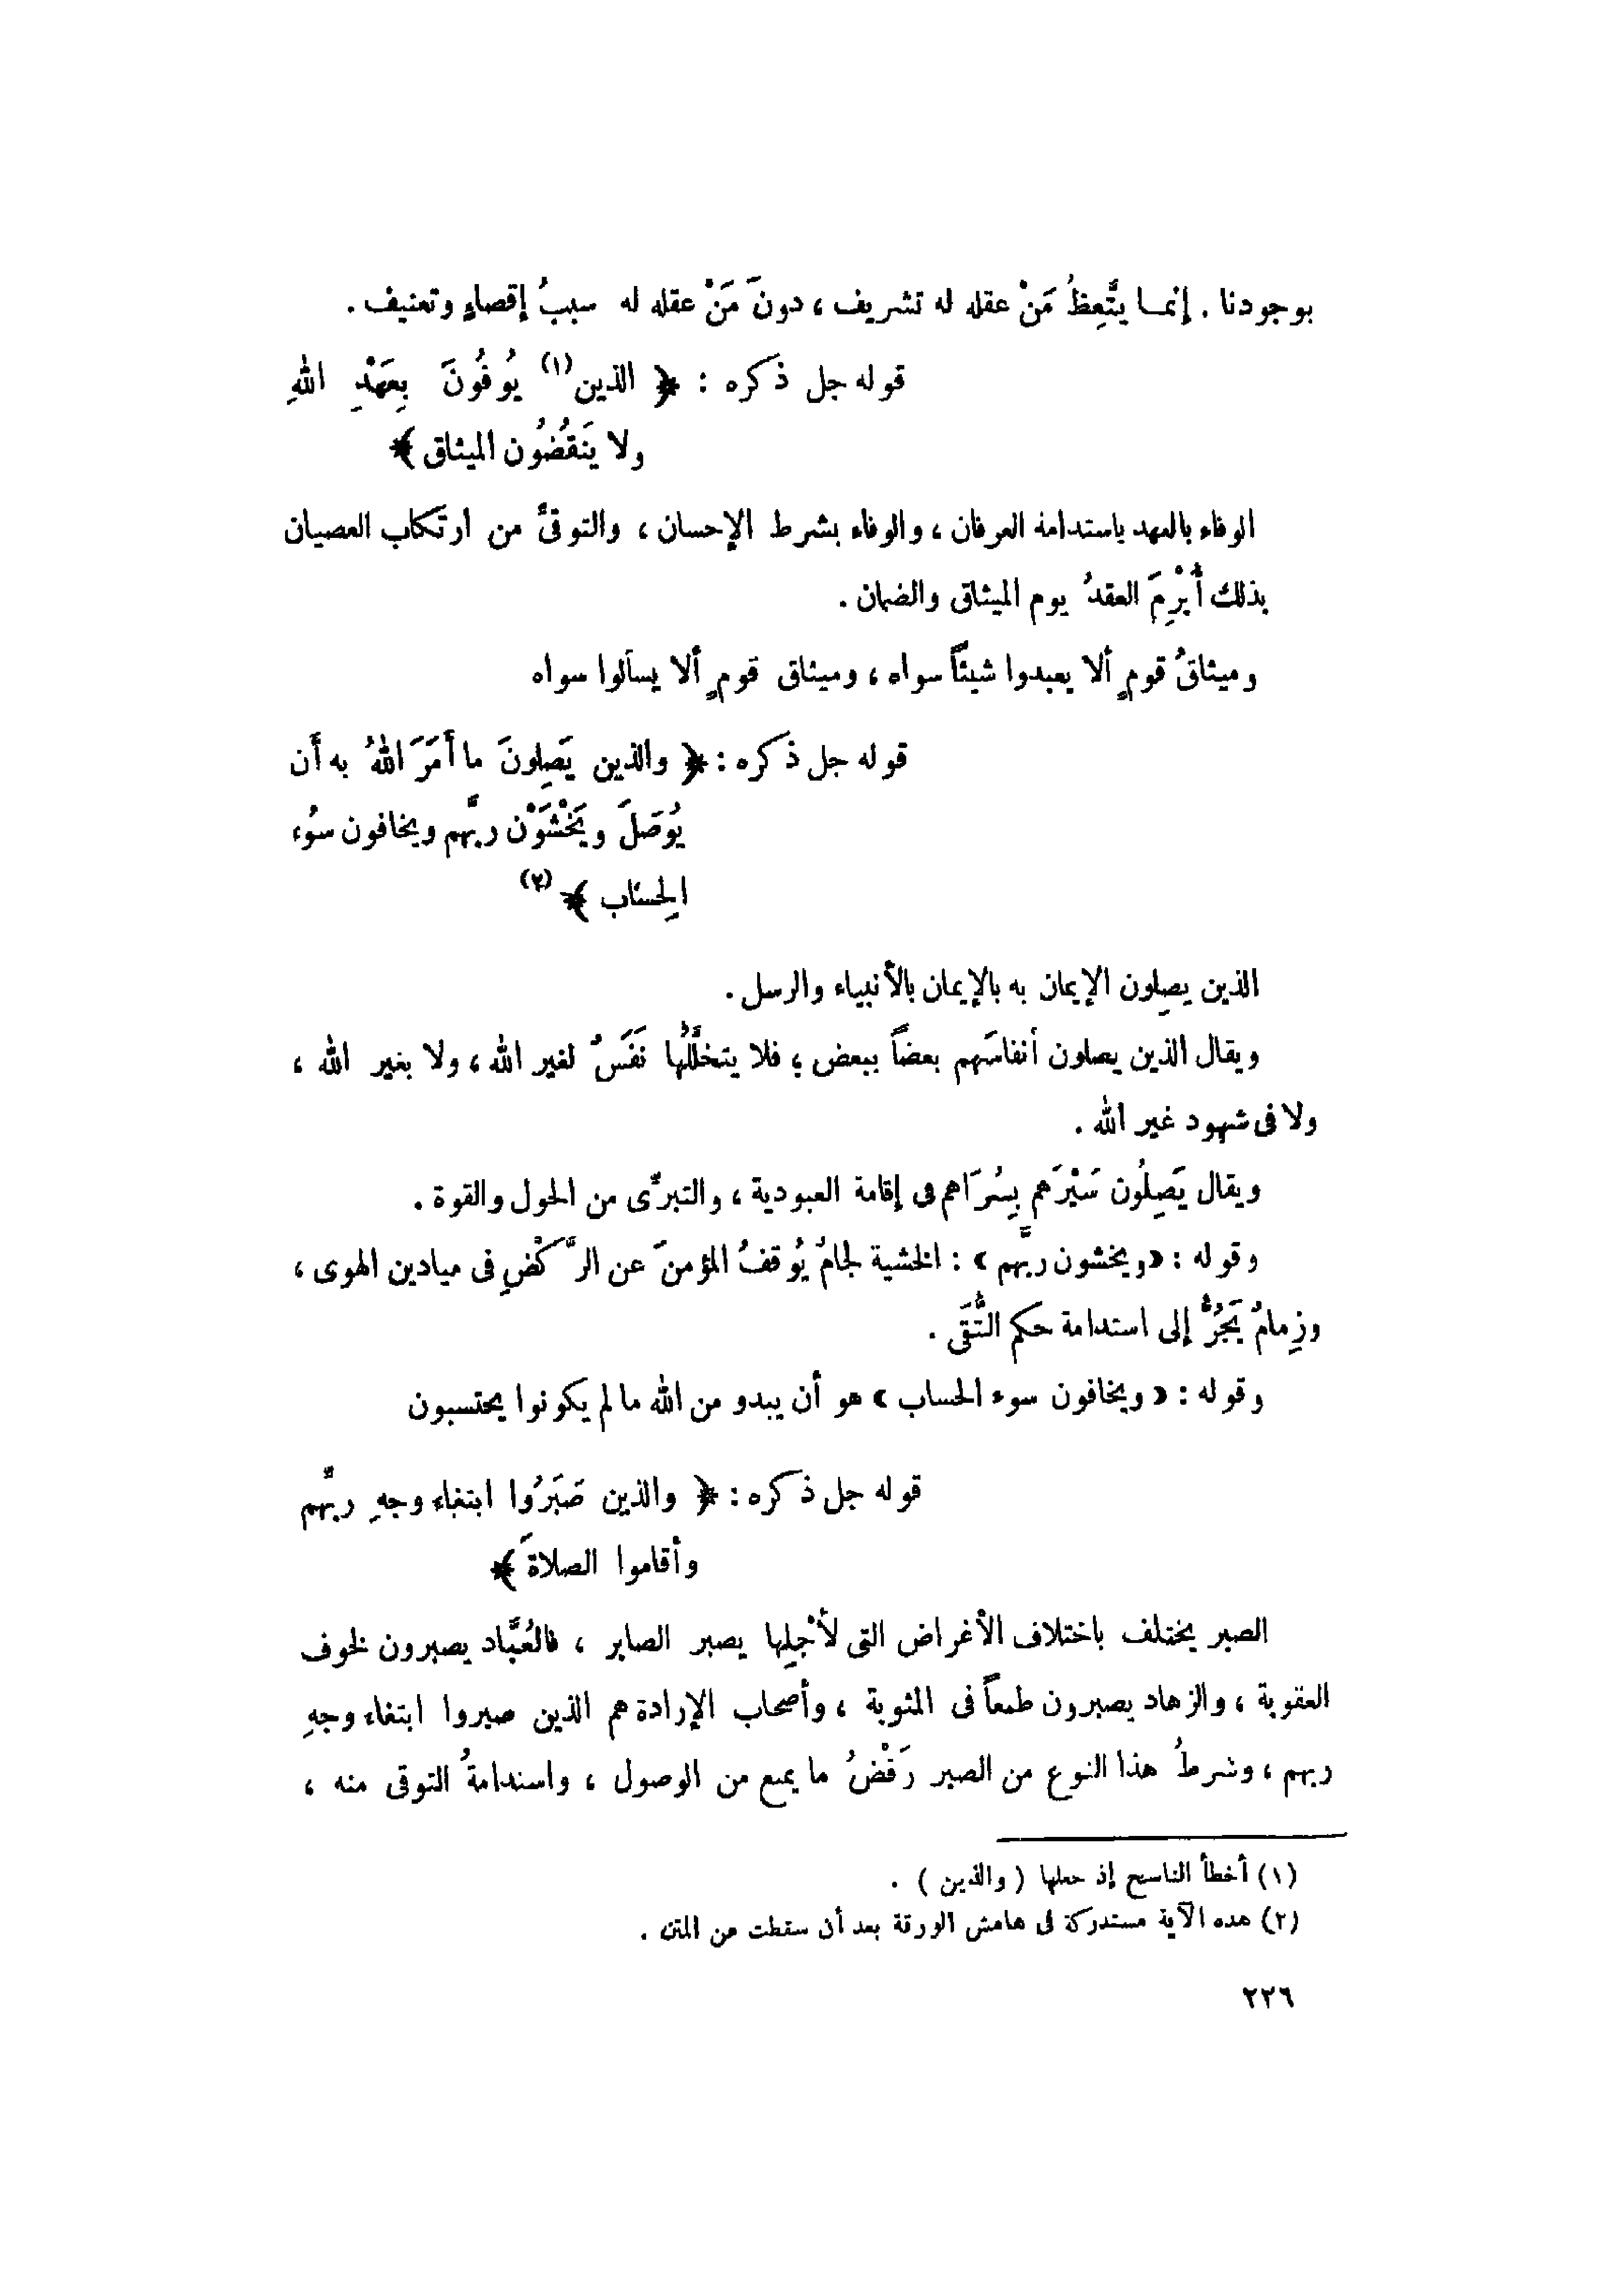 بوجودنا . إنما يتَّعِظُ مَنْ عقله له تشريف ، دونَ مَنْ عقله له سببُ إقصاءٍ وتعنيف .
قوله جل ذكره : ﴿ الذين (١) يُوفُونَ بِعَهْدِ اللهِ
ولا يَنقُضُون الميثاق ﴾
الوفاء بالعهد باستدامة العرفان ، والوفاء بشرط الإحسان ، والتوقىِّ من ارتكاب العصيان
بذلك أُبْرِمَ العقدُ يوم الميثاق والضمان .
وميثاقُ قومٍ ألا يعبدوا شيئاً سواه ، وميثاق قومٍ ألا يسألوا سواه
قوله جل ذكره : ﴿ والذين يَصِلونَ ما أَمَرَ اللهُ به أَن
يُوصَلَ ويَخْشَوْن ربَّهم ويخافون سُوء
الحِسَاب ﴾ (٢)
الذين يصِلون الإيمان به بالإيمان بالأنبياء والرسل .
ويقال الذين يصلون أنفاسَهم بعضاً ببعض ؛ فلا يتخلَّلُها نَفَسٌ لغير الله ، ولا بغير الله ،
ولا فى شهود غير الله .
ويقال يَصِلُون سَيْرَهم بِسُرَاهم فى إقامة العبودية ، والتبرِّى من الحول والقوة .
وقوله : « ويخشون ربَّهم » : الخشية لجامٌ يُوقفُ المؤمنَ عن الرَّكْضِ فى ميادين الهوى ،
وزِمامٌ يَجُرُّ إلى استدامة حكم التُّقَى .
وقوله : « ويخافون سوء الحساب » هو أن يبدو من الله ما لم يكونوا يحتسبون
قوله جل ذكره : ﴿ والذين صَبَرُوا ابتغاء وجهِ ربَّهم
وأقاموا الصلاةَ ﴾
الصبر يختلف باختلاف الأغراض التى لأَجْلِها يصبر الصابر ، فالعُبَّاد يصبرون لخوف
العقوبة ، والزهاد يصبرون طمعاً فى المثوبة ، وأصحاب الإرادة هم الذين صبروا ابتغاء وجهِ
ربهم ، وشرطُ هذا النوع من الصبر رَفْضُ ما يمنع من الوصول ، واستدامةُ التوقى منه ،
(١) أخطأ الناسخ إذ جعلها ( والذين ) .
(٢) هذه الآية مستدركة فى هامش الورقة بعد أن سقطت من المتن .
٢٢٦